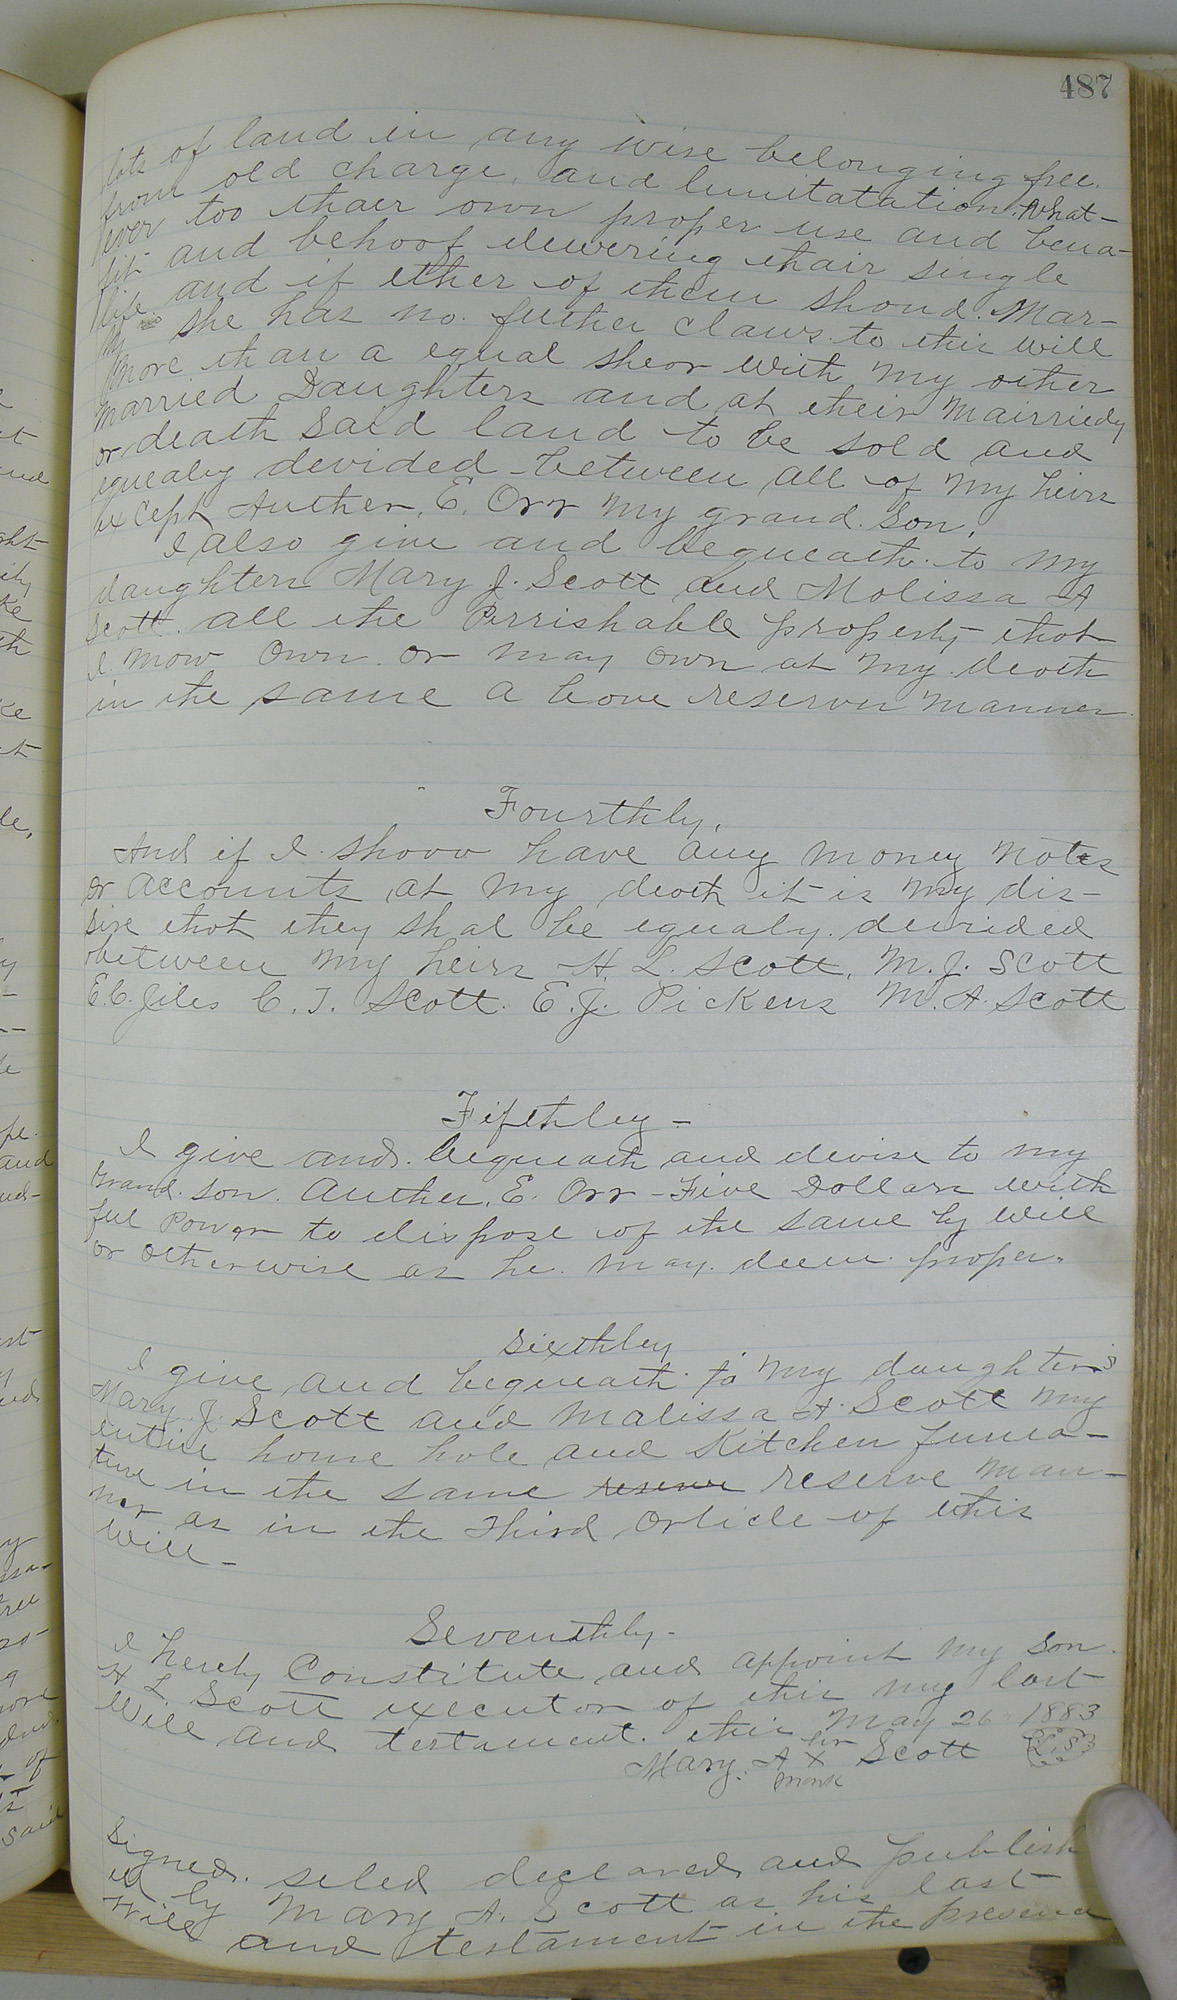 487
lots of land in any wise belonging free.
from old charge, and limitatation. What-
ever too thaer own proper use and bena-
fit and behoof dewering thair single
life and if ether of them shoud. Mar-
ry she has no. futher claws to this will
more than a equal shear with my other
married Daughters and at their Mairriedy
or death Said land to be sold and
equealy devided between all of my heirs
except Auther. E. Orr my grand. Son.
I also give and bequeath to my
daughters Mary J. Scott and Molissa A
Scott. all the Perrishable property that
I now own or may own at my death
in the same a bove reserve manner
Fourthly,
And if I shoov have any money notes
or accounts at my death it is my dis-
sire that they shal be equaly devided
between my heirs H. L. Scott, M. J. Scott
E. C. Jiles C. T. Scott. E. J. Pickens M. A. Scott
Fifthley -
I give and. bequeath and devise to my
Grand. son. Auther. E. Orr - Five Dollars with
ful Power to dispose of the same by will
or otherwise as he. may. deem proper.
Sixthley
I give and bequeath to my daughters
Mary J. Scott and Malissa A. Scott my
entire home hole and Kitchen furna-
ture in the same reserve reserve man-
ner as in the Third Orticle of this
Will -
Seventhly.
I hereby Constitute and appoint my Son
H L Scott executor of this my last
Will and testament. this May 26 1883
her
Mary. A X Scott L.S.
mark
Signed. seled declared and publish
ed by Mary A. Scott as his last
Will and testament in the presence